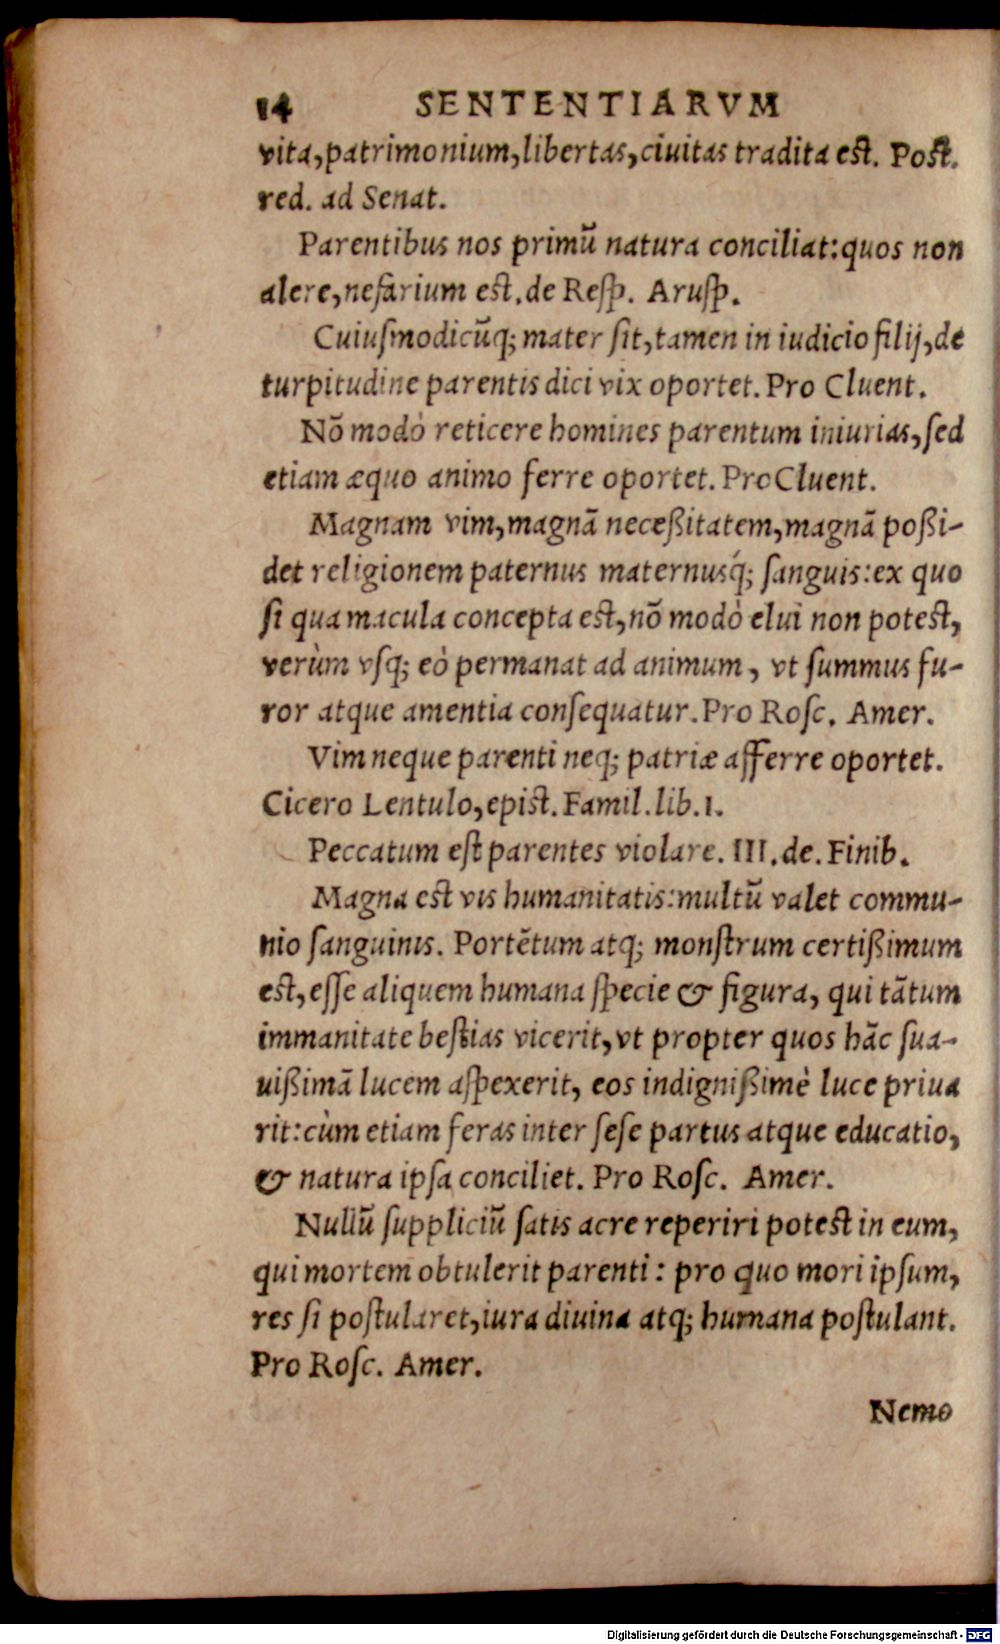 14 SENTENTIARVM
vita,patrimonium,libertas,ciuitas tradita est. Post.
red. ad Senat.
Parentibus nos primū natura conciliat:quos non
alere,nefarium est.de Resp. Arusp.
Cuiusmodicūq; mater sit,tamen in iudicio filij,de
turpitudine parentis dici vix oportet.Pro Cluent.
Nō modò reticere homines parentum iniurias,sed
etiam æquo animo ferre oportet.Pro Cluent.
Magnam vim,magnā neceßitatem,magnā poßi-
det religionem paternus maternusq́; sanguis:ex quo
si qua macula concepta est,nō modò elui non potest,
verùm vsq; eò permanat ad animum, vt summus fu-
ror atque amentia consequatur.Pro Rosc. Amer.
Vim neque parenti neq; patriæ afferre oportet.
Cicero Lentulo,epist.Famil.lib.1.
Peccatum est parentes violare.III.de.Finib.
Magna est vis humanitatis:multū valet commu-
nio sanguinis. Portētum atq; monstrum certißimum
est,esse aliquem humana specie & figura, qui tātum
immanitate bestias vicerit,vt propter quos hāc sua-
uißimā lucem aspexerit, eos indignißimè luce priua
rit:cùm etiam feras inter sese partus atque educatio,
& natura ipsa conciliet. Pro Rosc. Amer.
Nullū suppliciū satis acre reperiri potest in eum,
qui mortem obtulerit parenti: pro quo mori ipsum,
res si postularet,iura diuina atq; humana postulant.
Pro Rosc. Amer.
Nemo
Digitalisierung gefördert durch die Deutsche Forschungsgemeinschaft - DFG